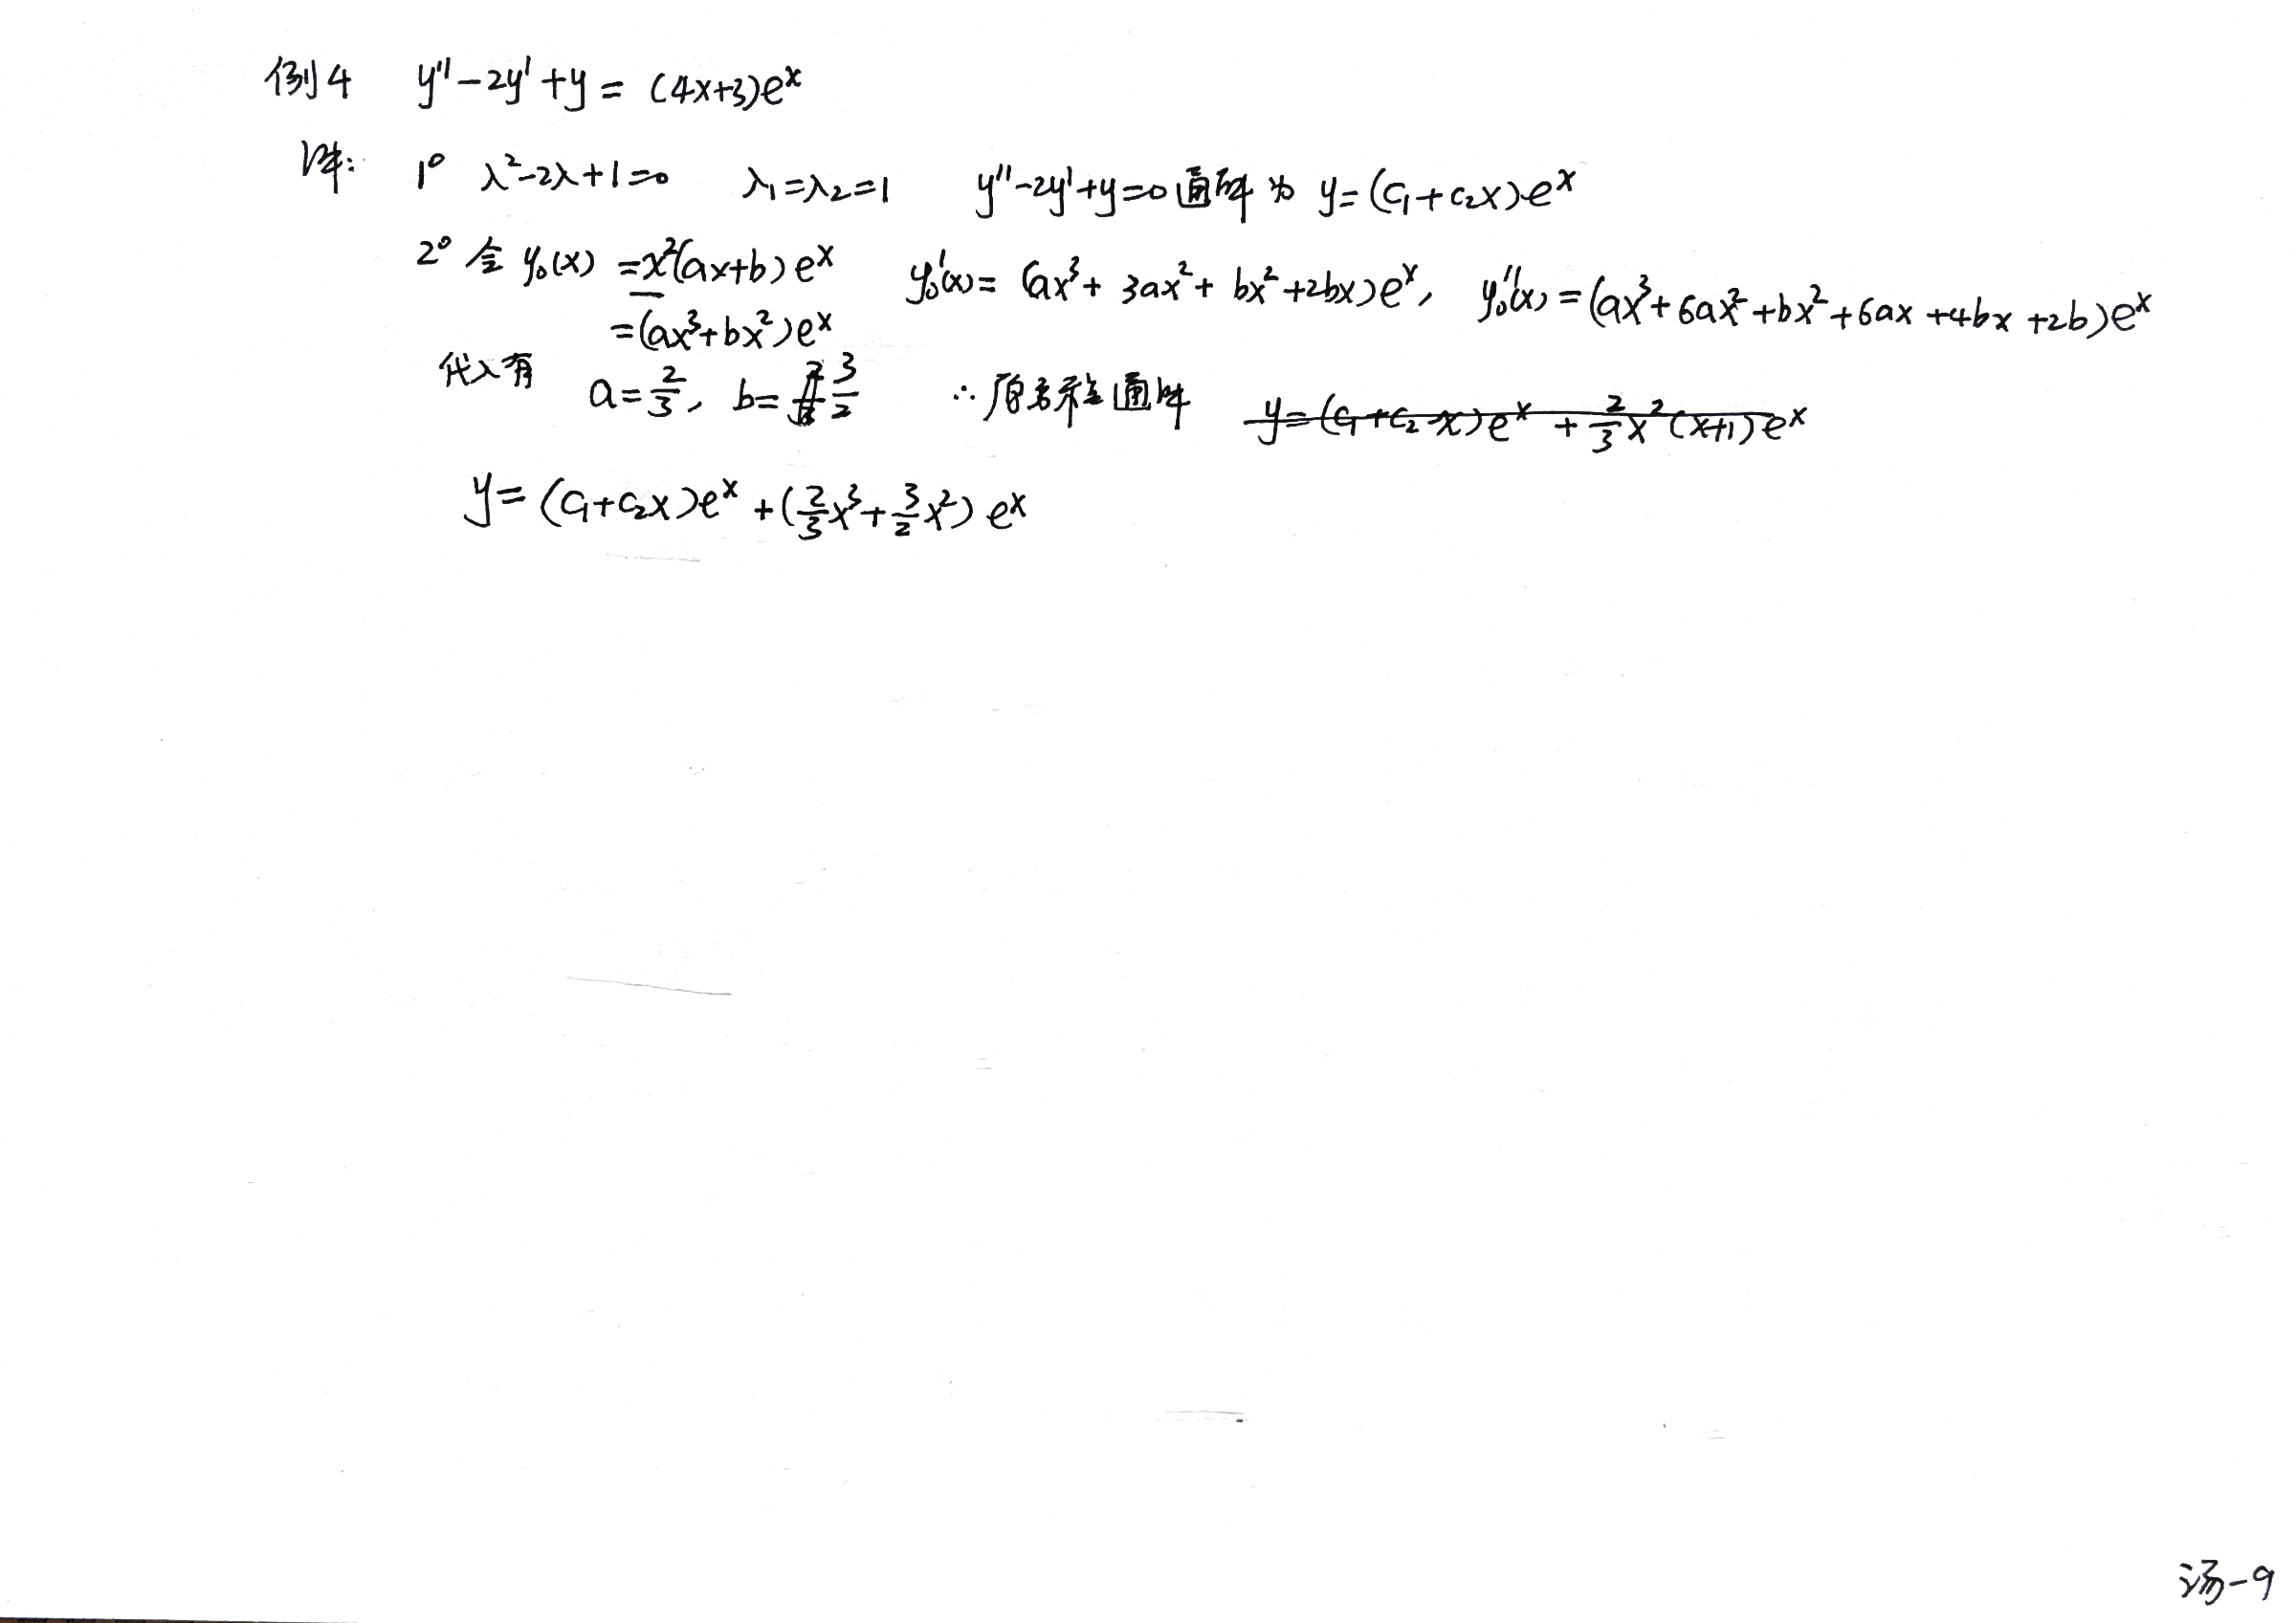 例4 y''-2y'+y=(4x+3)eˣ
解: 1° λ²-2λ+1=0 λ₁=λ₂=1 y''-2y'+y=0通解为 y=(C₁+C₂x)eˣ
2° 令 y₀(x)=x²(ax+b)eˣ y₀'(x)=(ax³+3ax²+bx²+2bx)eˣ, y₀''(x)=(ax³+6ax²+bx²+6ax+4bx+2b)eˣ
=(ax³+bx²)eˣ
代入有 a=2/3, b=3/2 ∴原方程通解 y=(C₁+C₂x)eˣ+2/3x²(x+1)eˣ
y=(C₁+C₂x)eˣ+(2/3x³+3/2x²)eˣ
汤-9